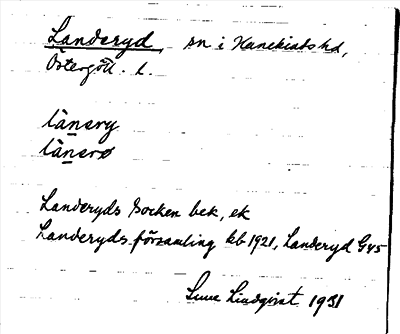 Landeryd, sn i Hanekindshd,
Östergötl. l.
lànery
lànerø
Landeryds socken bek, ek
Landeryds församling kb 1921, Landeryd G45
Sune Lindqvist 1931